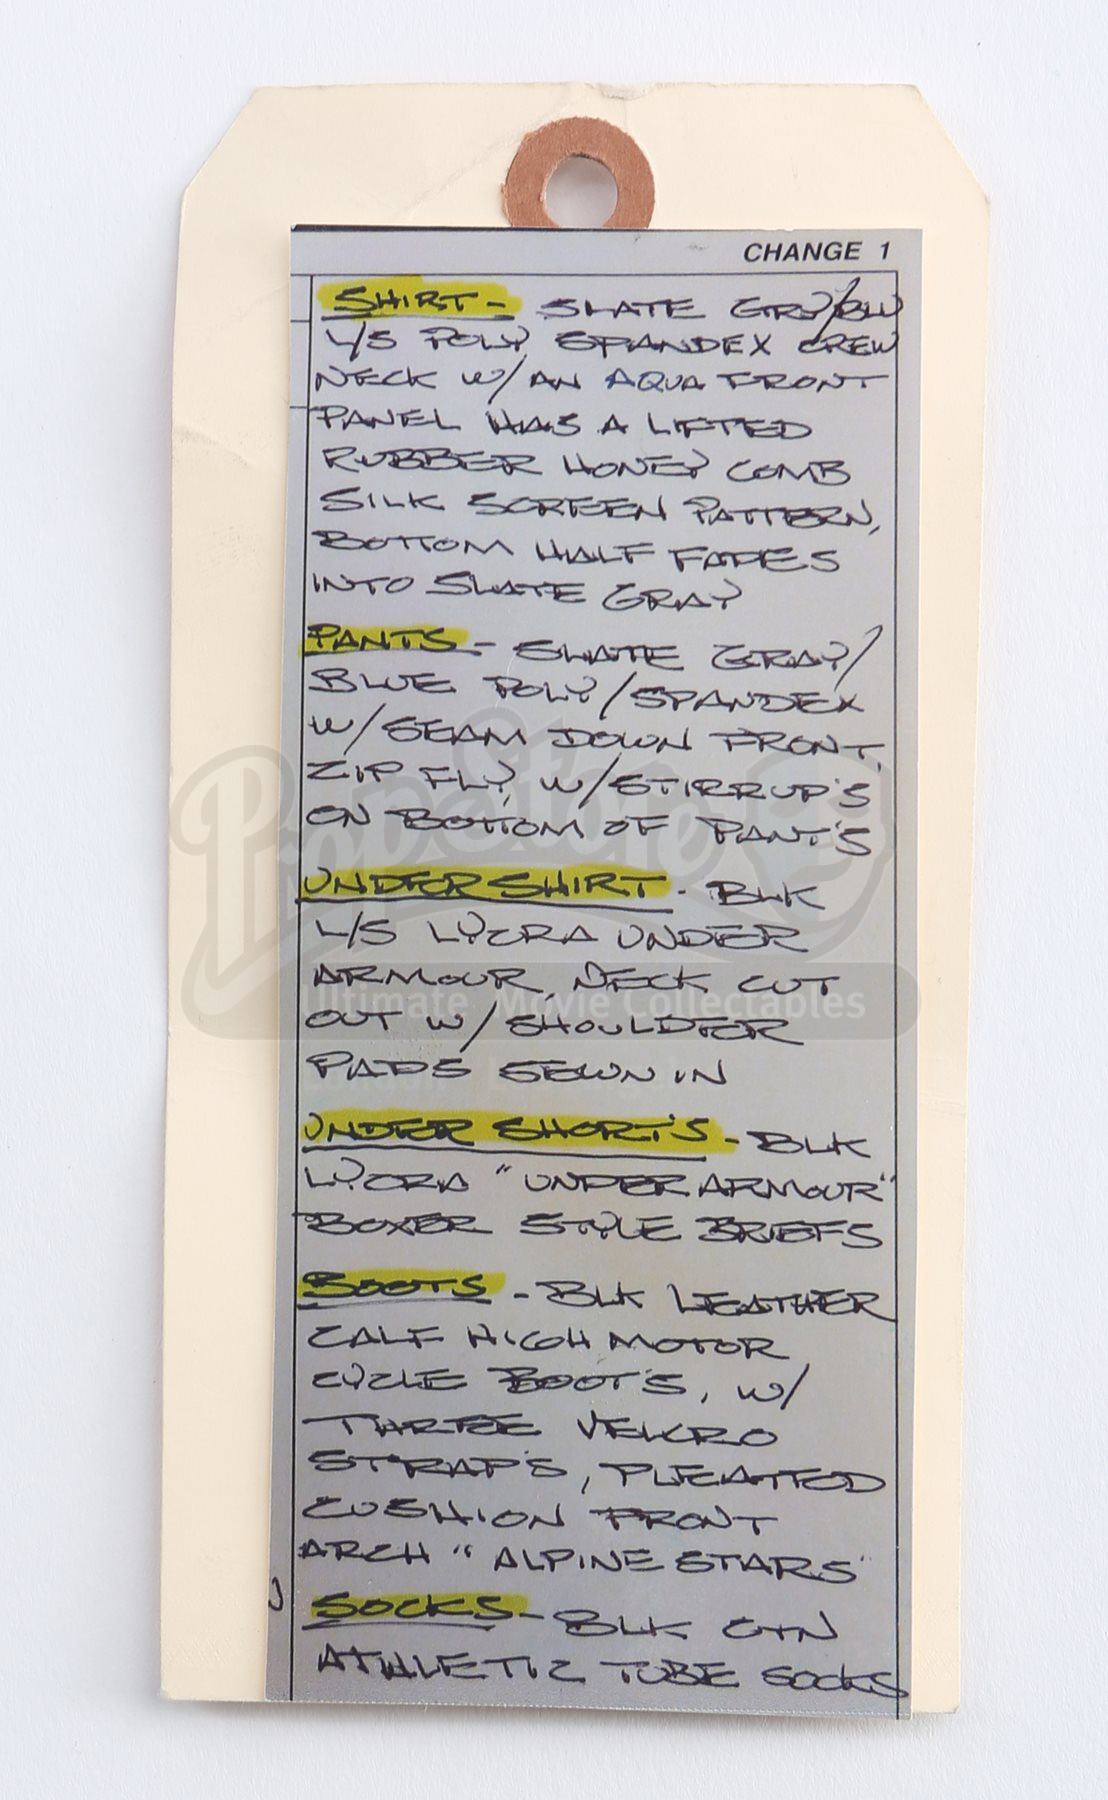 CHANGE 1
SHIRT - SLATE GRY/BLU
L/S POLY SPANDEX CREW
NECK W/ AN AQUA FRONT
PANEL HAS A LIFTED
RUBBER HONEY COMB
SILK SCREEN PATTERN,
BOTTOM HALF FADES
INTO SLATE GRAY
PANTS - SLATE GRAY/
BLUE POLY/SPANDEX
W/ SEAM DOWN FRONT,
ZIP FLY, W/ STIRRUP'S
ON BOTTOM OF PANT'S
UNDERSHIRT - BLK
L/S LYCRA UNDER
ARMOUR, NECK CUT
OUT W/ SHOULDER
PADS SEWN IN
UNDER SHORT'S - BLK
LYCRA "UNDER ARMOUR"
BOXER STYLE BRIEFS
BOOTS - BLK LEATHER
CALF HIGH MOTOR
CYCLE BOOT'S, W/
THREE VELCRO
STRAP'S, PLEATED
CUSHION FRONT
ARCH "ALPINESTARS"
SOCKS - BLK CTN
ATHLETIC TUBE SOCKS
PropStore
Ultimate Movie Collectables